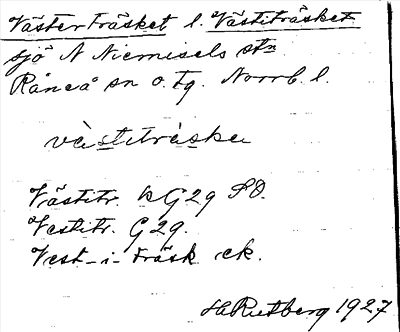 Västerträsket l. Västiträsket
sjö N Niemisels stn
Råneå sn o. tg. Norrb. l.
västiträska
Västitr. k G29 SO.
Vestitr. G29.
Vest-i-träsk ek.
H Rutberg 1927